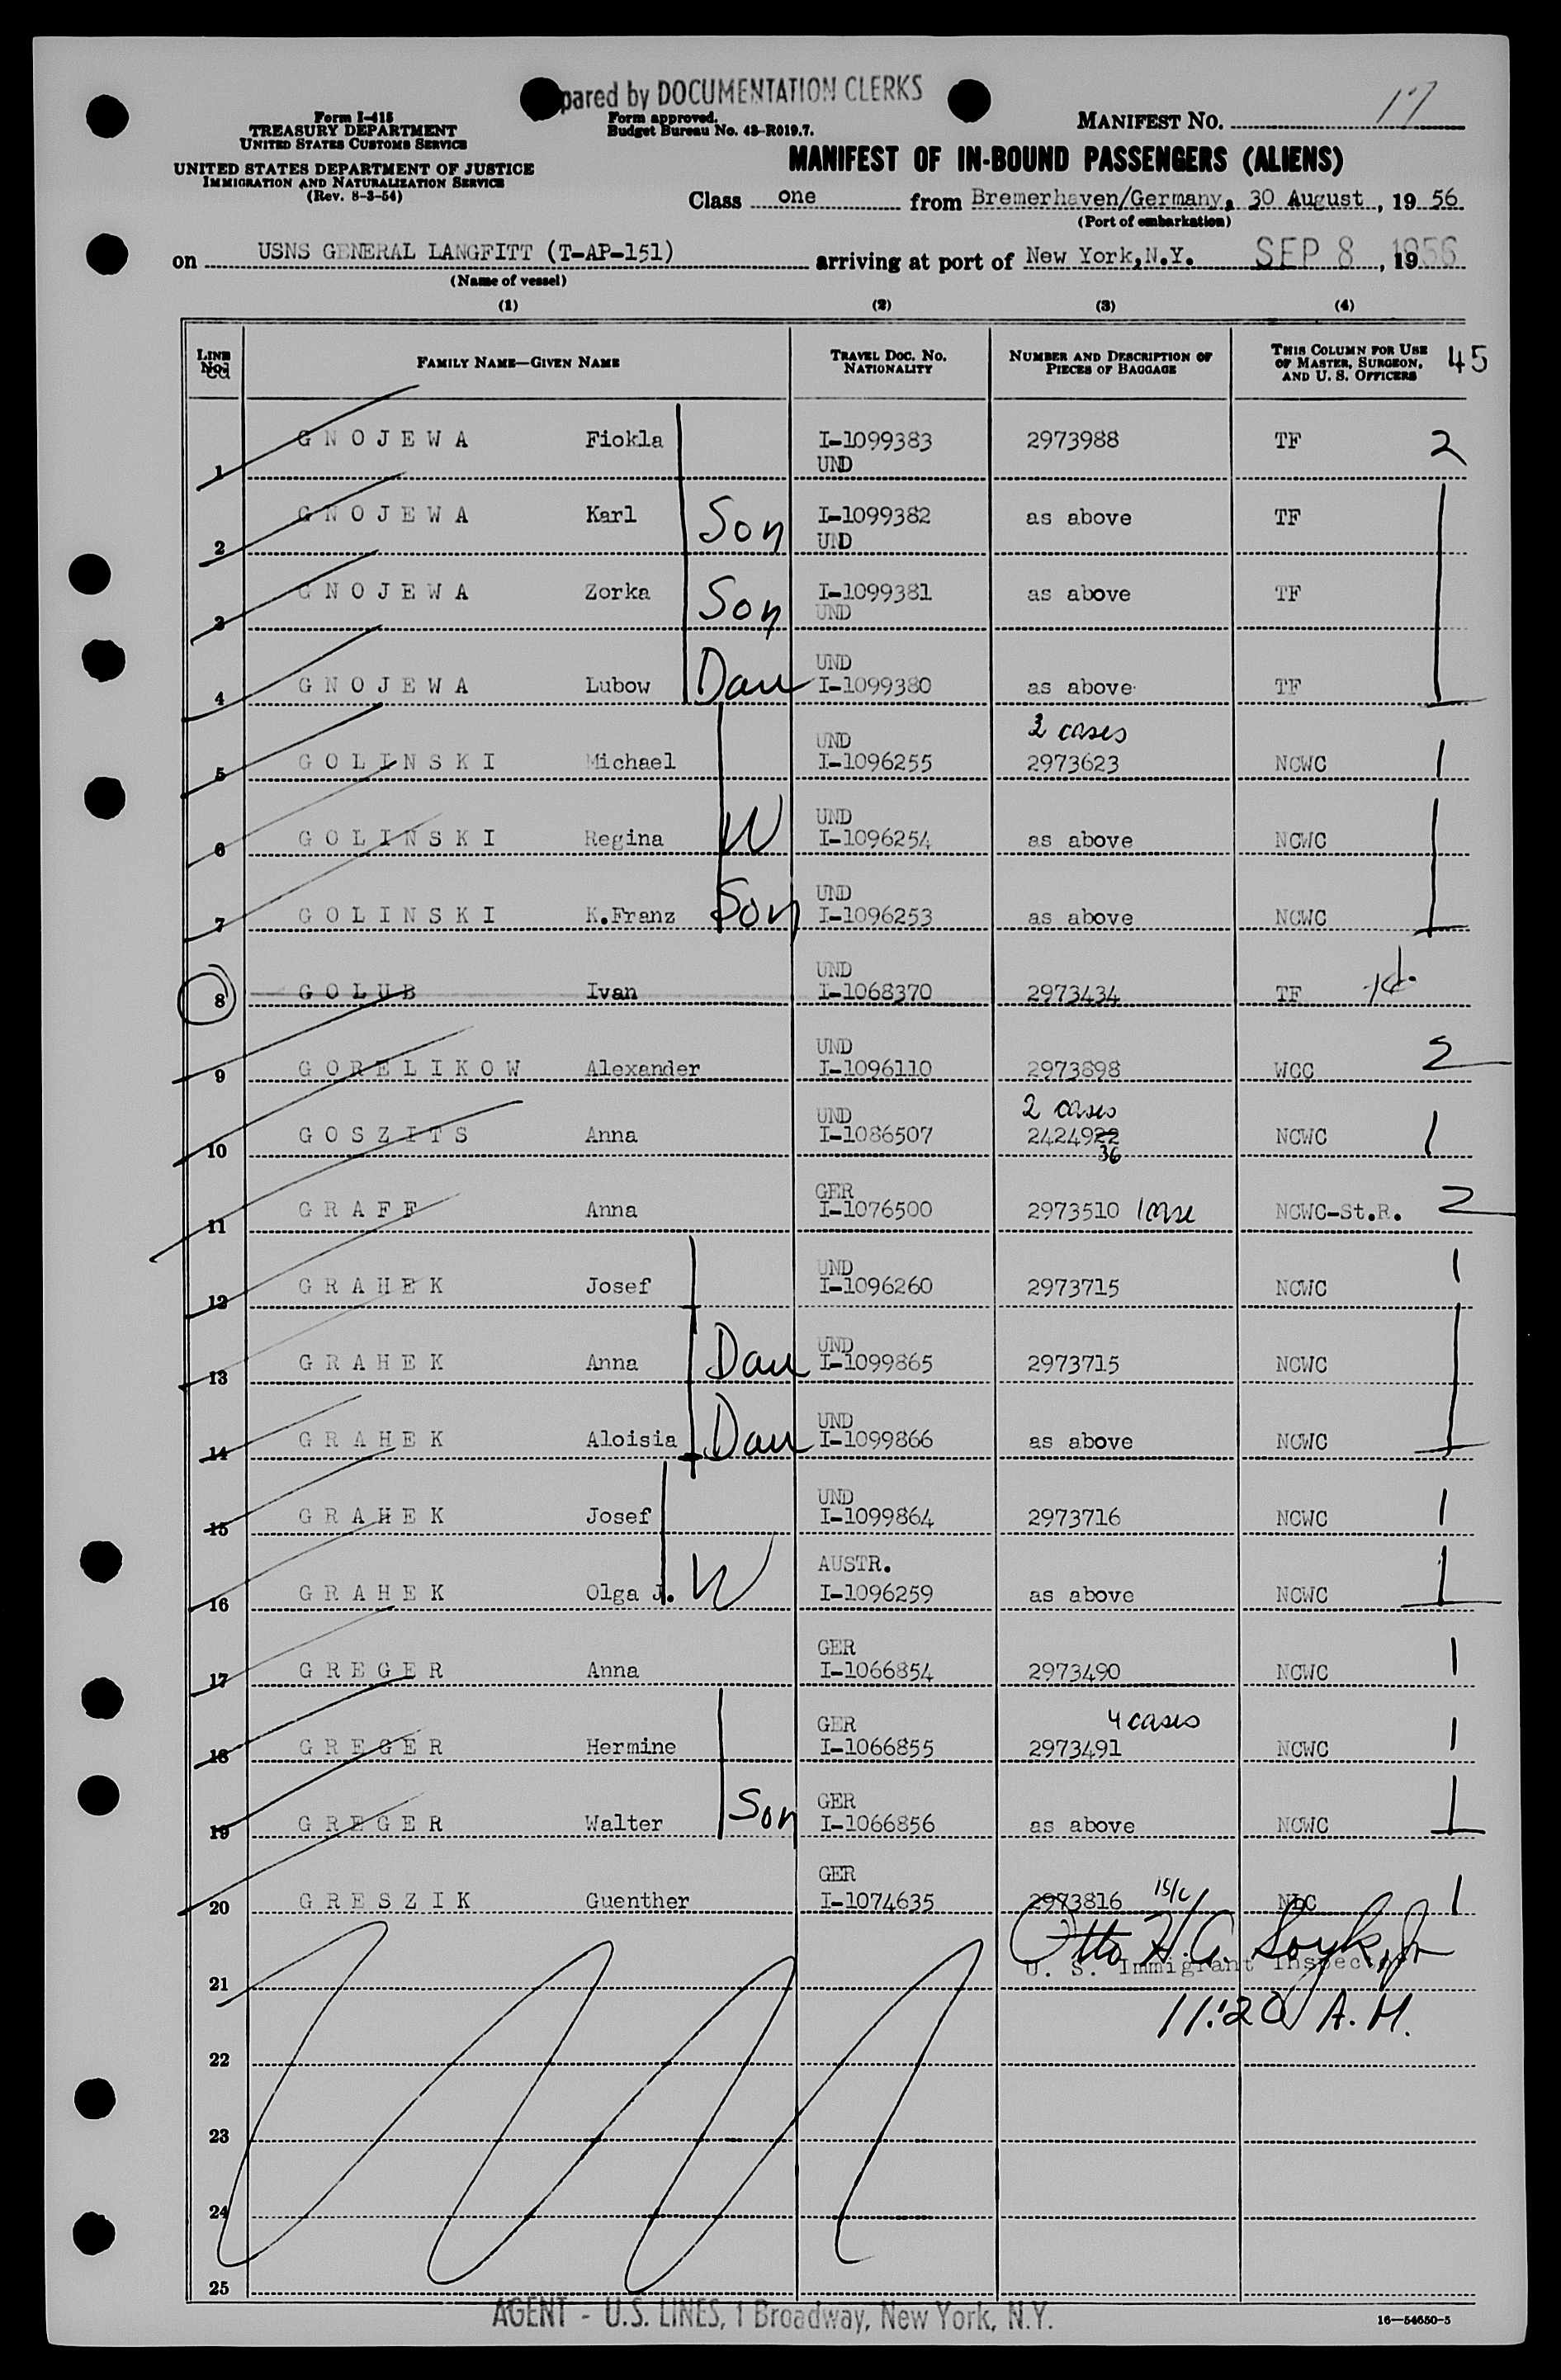 pared by DOCUMENTATION CLERKS
Form I-418
TREASURY DEPARTMENT
UNITED STATES CUSTOMS SERVICE
UNITED STATES DEPARTMENT OF JUSTICE
IMMIGRATION AND NATURALIZATION SERVICE
(Rev. 8-3-54)
Form approved.
Budget Bureau No. 43-R019.7.
MANIFEST NO. 17
MANIFEST OF IN-BOUND PASSENGERS (ALIENS)
Class one from Bremerhaven/Germany, 30 August, 19 56
(Port of embarkation)
on USNS GENERAL LANGFITT (T-AP-151) arriving at port of New York,N.Y. SEP 8, 1956
(Name of vessel)
(1) (2) (3) (4)
LINE NO. FAMILY NAME—GIVEN NAME TRAVEL DOC. NO. NATIONALITY NUMBER AND DESCRIPTION OF PIECES OF BAGGAGE THIS COLUMN FOR USE OF MASTER, SURGEON, AND U. S. OFFICERS 45
1 GNOJEWA Fiokla I-1099383 UND 2973988 TF 2
2 GNOJEWA Karl Son I-1099382 UND as above TF
3 GNOJEWA Zorka Son I-1099381 UND as above TF
4 GNOJEWA Lubow Dau UND I-1099380 as above TF
5 GOLINSKI Michael UND I-1096255 3 cases 2973623 NCWC 1
6 GOLINSKI Regina W UND I-1096254 as above NCWC
7 GOLINSKI K.Franz Son UND I-1096253 as above NCWC
8 GOLUB Ivan UND I-1068370 2973434 TF
9 GORELIKOW Alexander UND I-1096110 2973898 WCC 2
10 GOSZITS Anna UND I-1086507 2 cases 2424922 36 NCWC 1
11 GRAFF Anna GER I-1076500 2973510 1 case NCWC-St.R. 2
12 GRAHEK Josef UND I-1096260 2973715 NCWC 1
13 GRAHEK Anna Dau UND I-1099865 2973715 NCWC
14 GRAHEK Aloisia Dau UND I-1099866 as above NCWC
15 GRAHEK Josef UND I-1099864 2973716 NCWC 1
16 GRAHEK Olga J. W AUSTR. I-1096259 as above NCWC 1
17 GREGER Anna GER I-1066854 2973490 NCWC 1
18 GREGER Hermine GER I-1066855 4 cases 2973491 NCWC 1
19 GREGER Walter Son GER I-1066856 as above NCWC 1
20 GRESZIK Guenther GER I-1074635 2973816 NLC 1
Otto H.G.
U. S. Immigrant Inspector
21
11:20 A.M.
22
23
24
25
AGENT - U.S. LINES, 1 Broadway, New York, N.Y.
16—54650-5